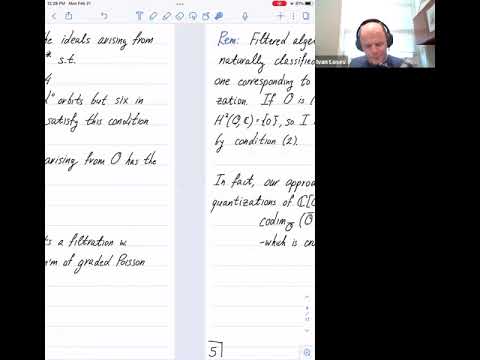 12:28 PM Mon Feb 21
81%
the ideals arising from
* s.t.
4
d° orbits but six in
satisfy this condition
arising from O has the
ts a filtration w.
m of graded Poisson
Rem: Filtered alge
naturally classifie
one corresponding to
zation. If O is (
H²(O,C)={0}, so I
by condition (2).
In fact, our approa
quantizations of C[O
codim
-which is en
5
Ivan Losev